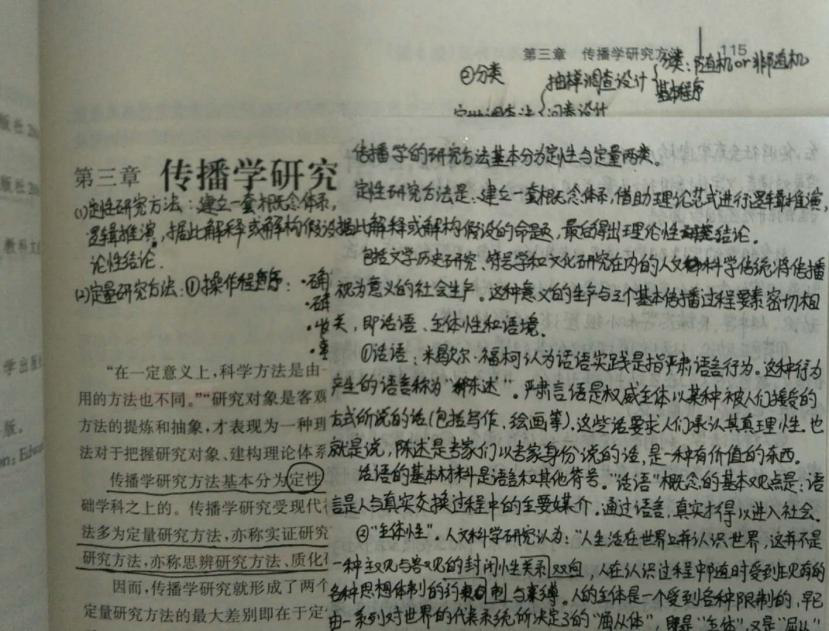 第三章 传播学研究方 115
②分类 抽样调查设计 分类:随机or非随机
基本程序
问卷设计
第三章 传播学研究
(1)定性研究方法:建立一套概念体系,
逻辑推演,据此解释或解构假设
论性结论.
(2)定量研究方法:①操作程序:·确
传播学的研究方法基本分为定性与定量两类。
定性研究方法是:建立一套概念体系,借助理论范式进行逻辑推演,
据此解释或解构假设的命题,最后得出理论性结论.
包括文学历史研究、符号学和文化研究在内的人文科学传统将传播
视为意义的社会生产。这种意义的生产与三个基本传播过程要素密切相
关,即话语、主体性和语境.
①话语:米歇尔·福柯认为话语实践是指严肃语言行为。这种行为
产生的语言称为“陈述”。严肃言语是权威主体以某种被人们接受的
方式所说的话(包括写作、绘画等).这些话要求人们承认其真理性.也
就是说,陈述是专家们以专家身份说的话,是一种有价值的东西。
话语的基本材料是语言和其他符号。“话语”概念的基本观点是:语
言是人与真实交换过程中的主要媒介。通过语言,真实才得以进入社会.
②“主体性”.人文科学研究认为:“人生活在世界上并认识世界,这并不是
一种主观与客观的封闭性关系双向,人在认识过程中随时受到现有的
各种思想体制的约制与束缚。人的主体是一个受到各种限制的,早已
由一系列对世界的代表系统所决定了的“屈从体”,既是“主体”又是“屈从”
“在一定意义上,科学方法是由
用的方法也不同。”“研究对象是客观
方法的提炼和抽象,才表现为一种理
法对于把握研究对象、建构理论体系
传播学研究方法基本分为定性
础学科之上的。传播学研究受现代
法多为定量研究方法,亦称实证研究
研究方法,亦称思辨研究方法、质化
因而,传播学研究就形成了两个
定量研究方法的最大差别即在于定